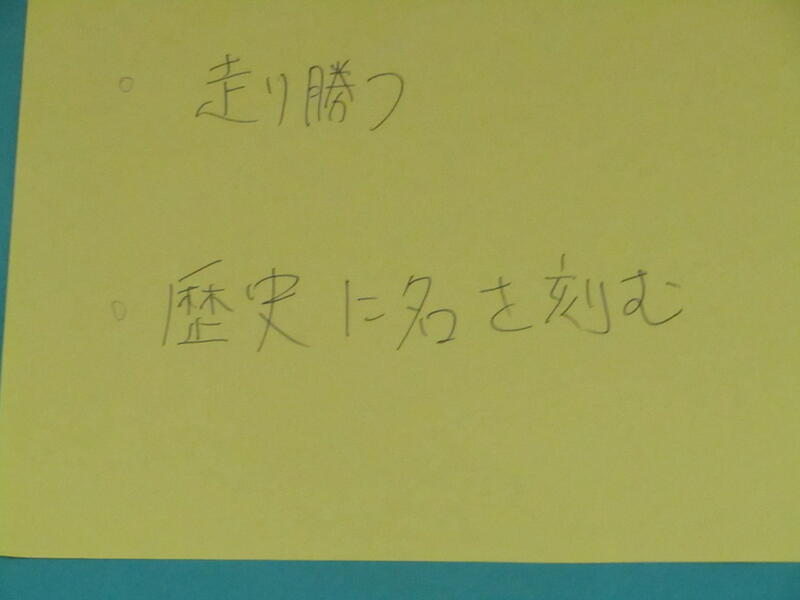 。走り勝つ
。歴史に名を刻む